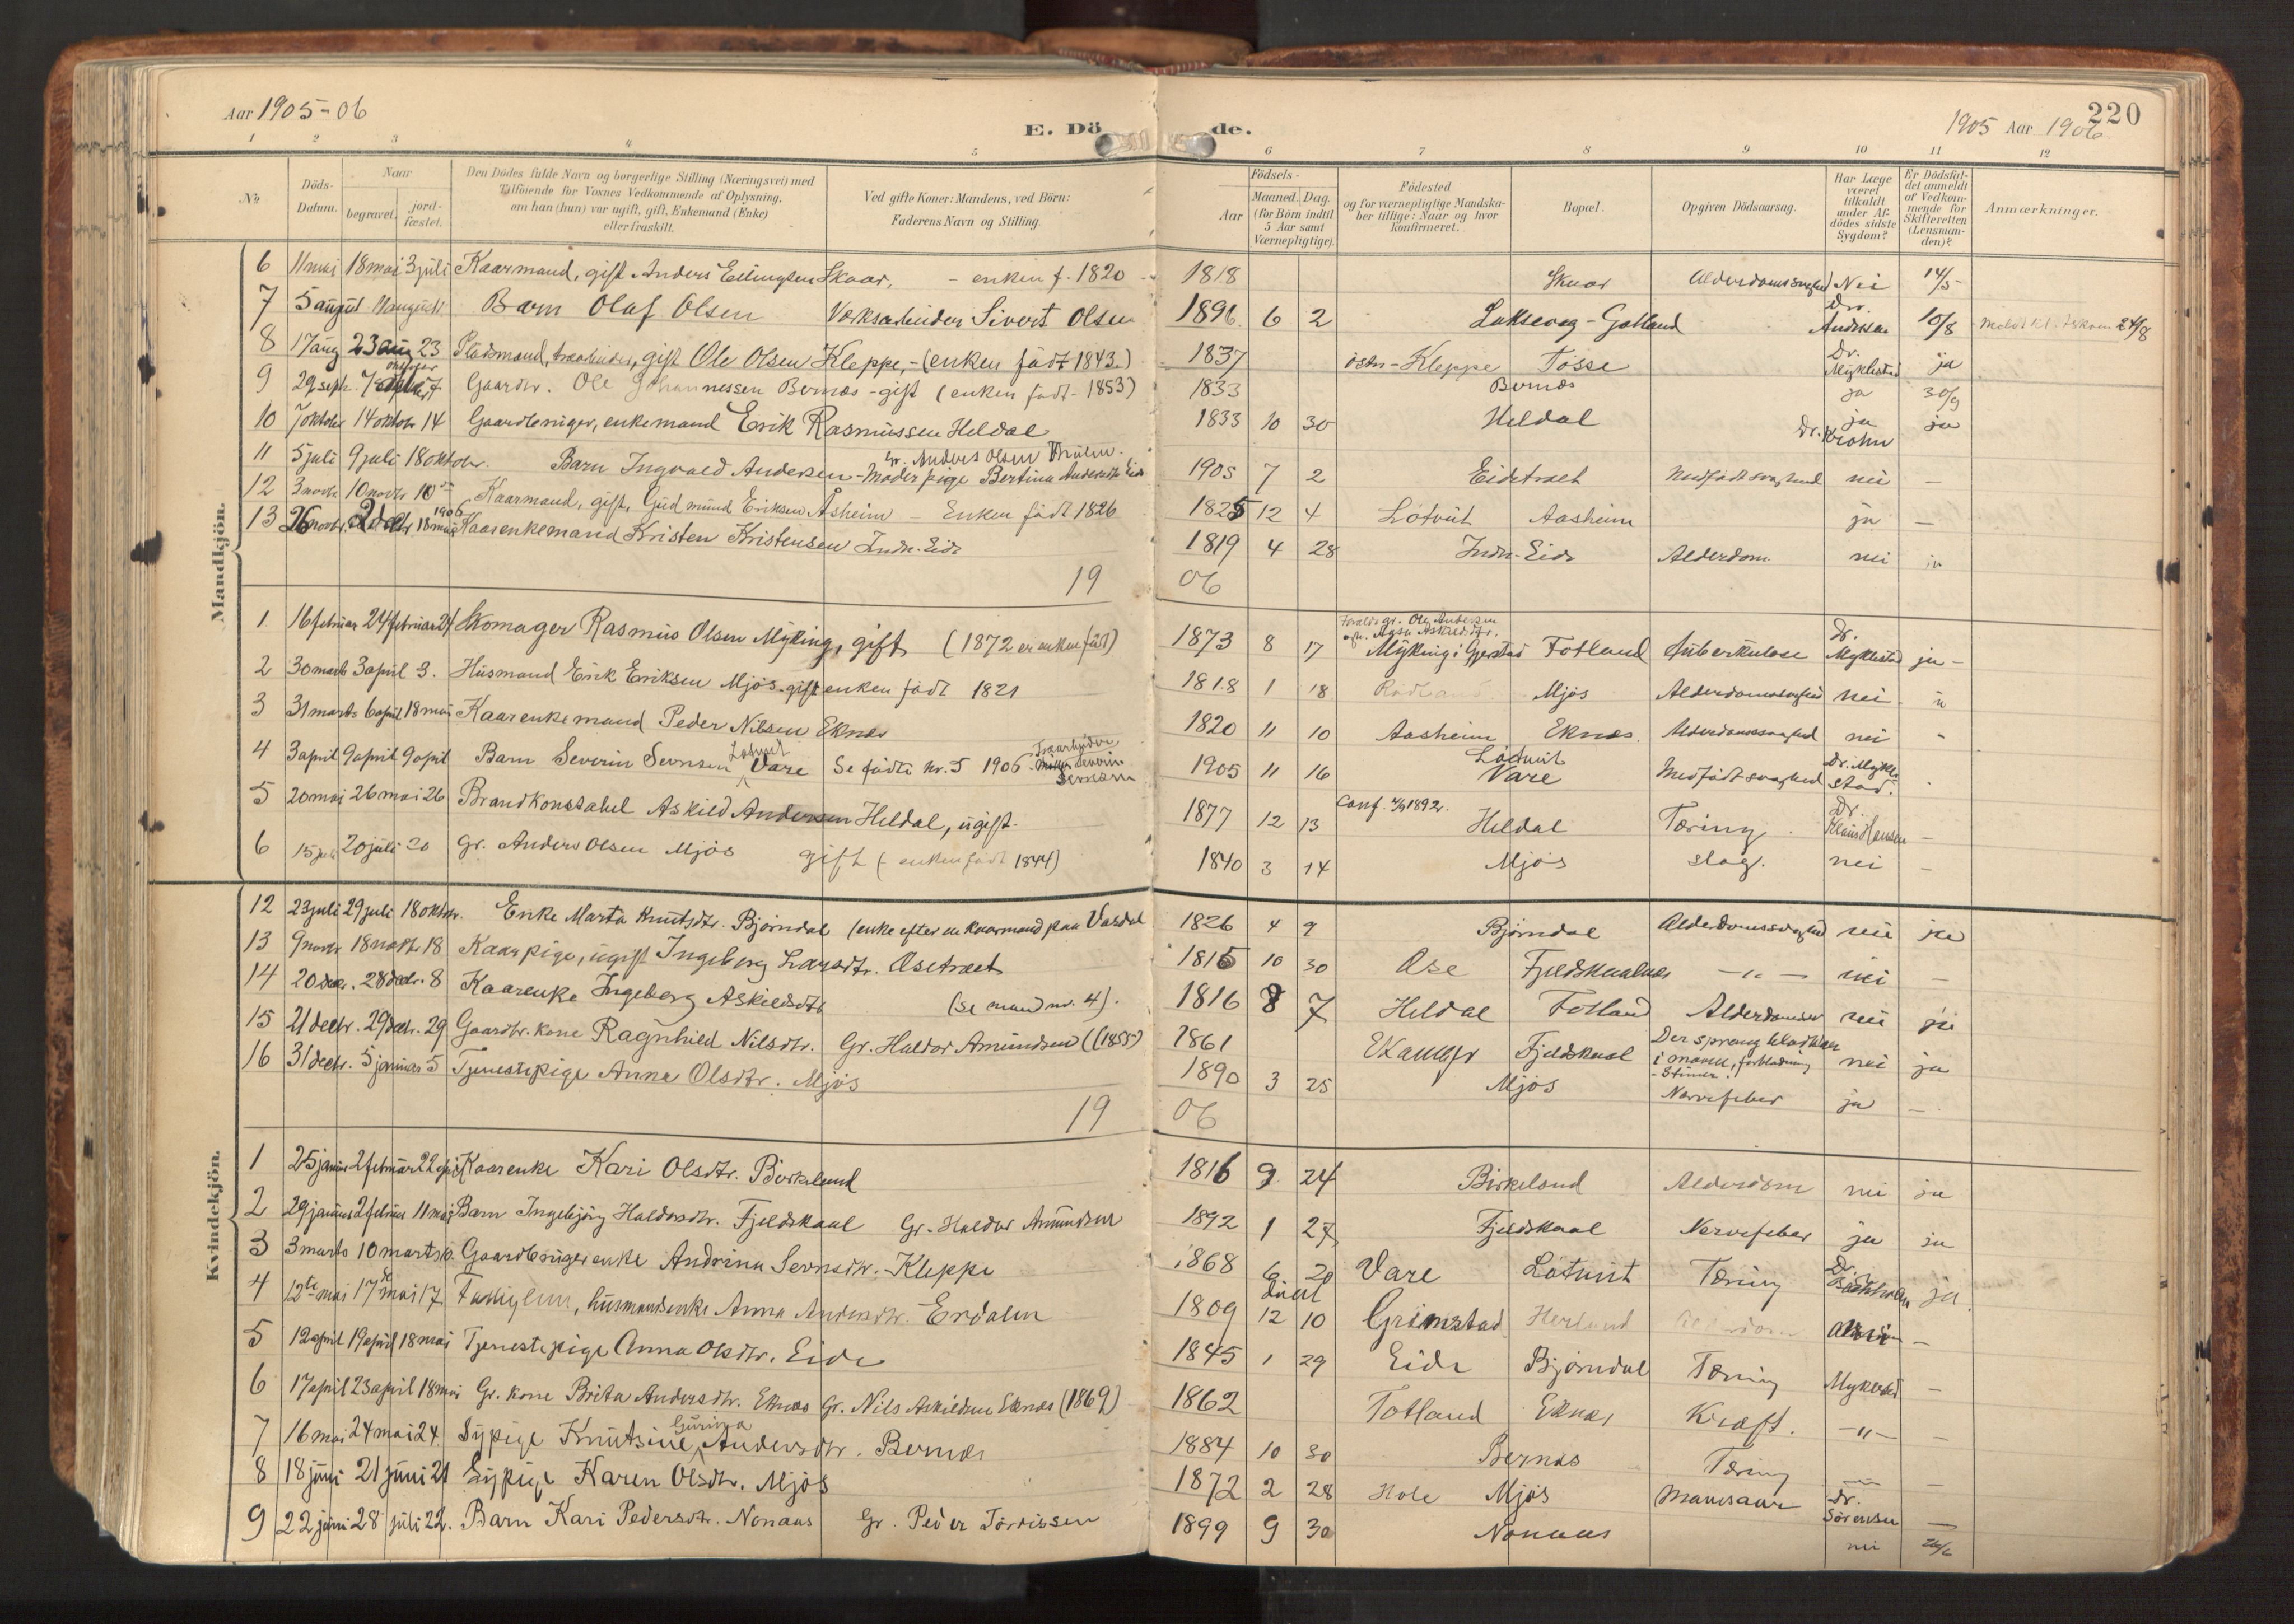 Aar 1905-06
E. Dö de.
1905 Aar 1906
220
1 2 3 4 5 6 7 8 9 10 11 12
No
Döds-Datum.
Naar
begravet.
jord-fæstet.
Den Dödes fulde Navn og borgerlige Stilling (Næringsvei) med
Tilföiende for Voxnes Vedkommende af Oplysning,
om han (hun) var ugift, gift, Enkemand (Enke)
eller fraskilt.
Ved gifte Koner: Mandens, ved Börn:
Faderens Navn og Stilling.
Födsels-
Aar
Maaned. Dag.
(for Börn indtil
5 Aar samt
Værnepligtige).
Födested
og for værnepligtige Mandska-
ber tillige: Naar og hvor
konfirmeret.
Bopæl.
Opgiven Dödsaarsag.
Har Læge
været
tilkaldt
under Af-
dödes sidste
Sygdom?
Er Dödsfal-
det anmeldt
af Vedkom-
mende for
Skifteretten
(Lensman-
den)?
Anmærkninger.
Mandkjön.
6 11 mai 18 mai 3 juli Kaarmand, gift Anders Ellingsen Skaar, - enken f. 1820 1818 Skaar Alderdomssvaghed Nei 14/5
7 5 august 11 august Barn Olaf Olsen Værksarbeider Sivert Olsen 1896 6 2 Laksevaag - Gotland Dr. Andersen 10/8 24/8
8 17 aug 23 aug 23 Pladsmand, gift Ole Olsen Kleppe, - (enken födt 1843) 1837 Kleppe Tosse Dr. Myklestad ja
9 29 sept. 7 oktober 7 Gaardbr. Ole Johannessen Bernæs - gift (enken födt - 1853) 1833 Bernæs ja 30/9
10 7 oktober 14 oktobr 14 Gaardbruger, enkemand Erik Rasmussen Heldal 1833 10 30 Heldal ja Dr. Krohn ja
11 5 juli 9 juli 18 oktobr. Barn Ingvald Andersen - Moder pige Bertina Andersdtr Eide 1905 7 2 Eidetræet Medfödt svaghed nei -
12 3 novbr 10 novbr 10 Kaarmand, gift, Gudmund Eriksen Åsheim Enken födt 1826 1825 12 4 Lötvit Aasheim ja -
13 26 novbr. 2 decbr 18 mai 1906 Kaarenkemand Kristen Kristensen Indr. Eide 1819 4 28 Indr. Eide Alderdom nei ja
19 06
1 16 februar 24 februar 24 Skomager Rasmus Olsen Myking, gift (1872 er enken födt) 1873 8 17 Forældr gr. Ole Andersen Myking i Gjerstad Totland Tuberkulose Dr. Myklestad ja -
2 30 marts 3 april 3. Husmand Erik Eriksen Mjös. gift enken födt 1821 1818 1 18 Rödland Mjös Alderdomssvaghed nei
3 31 marts 6 april 18 mai Kaarenkemand Peder Nilsen Eknæs 1820 11 10 Aasheim Eknæs Alderdomssvaghed nei -
4 3 april 9 april 9 april Barn Severin Sevrinsen Lötvit Vare Se födte nr. 5 1906 Severin 1905 11 16 Lötvit Vare Medfödt svaghed Dr. Myklestad.
5 20 mai 26 mai 26 Brandkonstabel Askild Andersen Heldal, ugift. 1877 12 13 Conf. 1892. Heldal Tæring Dr. Klaus Hansen -
6 15 juli 20 juli 20 Gr. Anders Olsen Mjös gift (- enken födt 1844) 1840 3 14 Mjös slag. nei -
Kvindekjön.
12 23 juli 29 juli 18 oktbr. Enke Marta Knutsdtr. Bjørndal (enke efter en kaarmand paa Vasdal 1826 4 9 Bjørndal Alderdomssvaghed nei ja
13 9 novbr 18 novbr 18 Kaarpige, ugift Ingeborg Larsdtr. Osetræet 1815 10 30 Ose Fjeldskaalnes - " - nei -
14 20 decbr. 28 decbr. 8 Kaarenke Ingeborg Askildsdtr (se mand nr. 4). 1816 8 7 Heldal Totland Alderdomssv nei ja
15 21 decbr. 29 decbr. 29 Gaardbr. kone Ragnhild Nilsdtr. Gr. Haldor Amundsen (1855) 1861 Ekanger Fjeldskaal Der sprang blodkar i maven, forblødning nei ja
16 31 decbr. 5 januar 5 Tjenestepige Anna Olsdtr. Mjös 1890 3 25 Mjös Nervefeber ja -
19 06
1 25 januar 2 februar 22 april Kaarenke Kari Olsdtr. Birkeland 1816 9 24 Birkeland Alderdom nei ja
2 29 januar 2 februar 11 mai Barn Ingebjörg Haldorsdtr. Fjeldskaal Gr. Haldor Amundsen 1892 1 27 Fjeldskaal Nervefeber ja ja
3 3 marts 10 marts 10. Gaardbrugerenke Andrina Sevrinsdtr. Kleppe 1868 6 20 Vare Lötvit Tæring Dr. ja
4 12te mai 17de mai 17 Fattiglem, husmandsenke Anna Andersdtr. Erdalen 1809 12 10 döbt Grimstad Herland Alderdom nei -
5 12 april 19 april 18 mai Tjenestepige Anna Olsdtr. Eide 1845 1 29 Eide Bjørndal Tæring Myklestad -
6 17 april 23 april 18 mai Gr. kone Brita Andersdtr. Eknæs Gr. Nils Askildsen Eknæs (1869) 1862 Totland Eknæs Kræft. - " - -
7 16 mai 24 mai 24 Sypige Knutsine Gurina Andersdtr. Bernæs 1884 10 30 Bernæs Tæring - " - -
8 18 juni 21 juni 21 Sypige Karen Olsdtr. Mjös 1872 2 28 Hole Mjös Mavesaar Dr. Sörensen -
9 22 juni 28 juli 22. Barn Kari Pedersdtr. Nonaas Gr. Peder Torrissen 1899 9 30 Nonaas nei 26/6